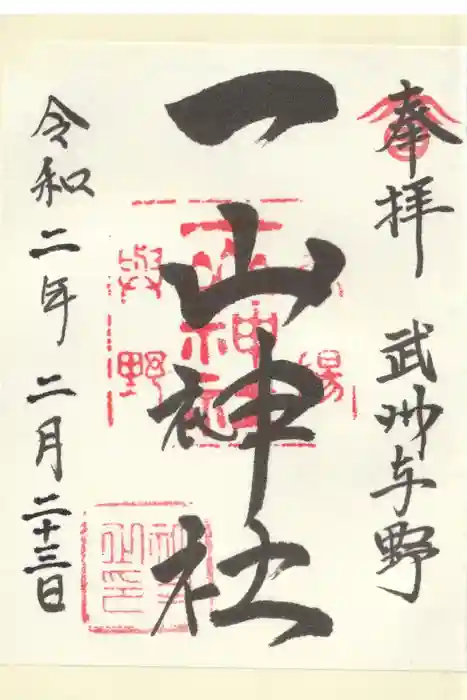 奉拝 武州与野
一山神社
令和二年二月二十三日